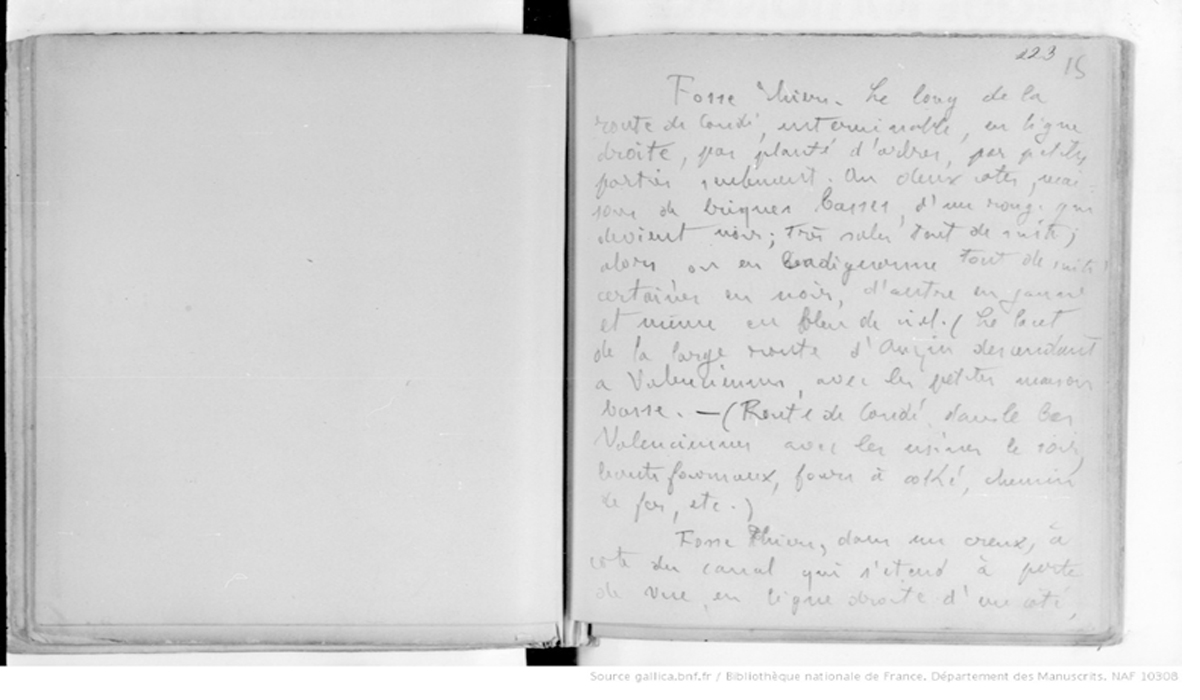 223 15
Fosse Thiers. Le long de la
route de Condé, interminable, en ligne
droite, pas planté d'arbres, par petites
parties seulement. Aux deux cotés, mai-
sons de briques basses, d'un rouge qui
devient noir; très sales tout de suite;
alors on en badigeonne tout de suite
certaines en noir, d'autre en jaune
et même en bleu de ciel. (Le lacet
de la large route d'Anzin descendant
a Valenciennes, avec les petites maison
basse. — (Route de Condé, dans le bas
Valenciennes avec les usines le soir,
hauts fourneaux, fours à coke, chemin
de fer, etc.)
Fosse Thiers, dans un creux, à
coté du canal qui s'étend à perte
de vue, en ligne droite d'un coté,
Source gallica.bnf.fr / Bibliothèque nationale de France. Département des Manuscrits. NAF 10308